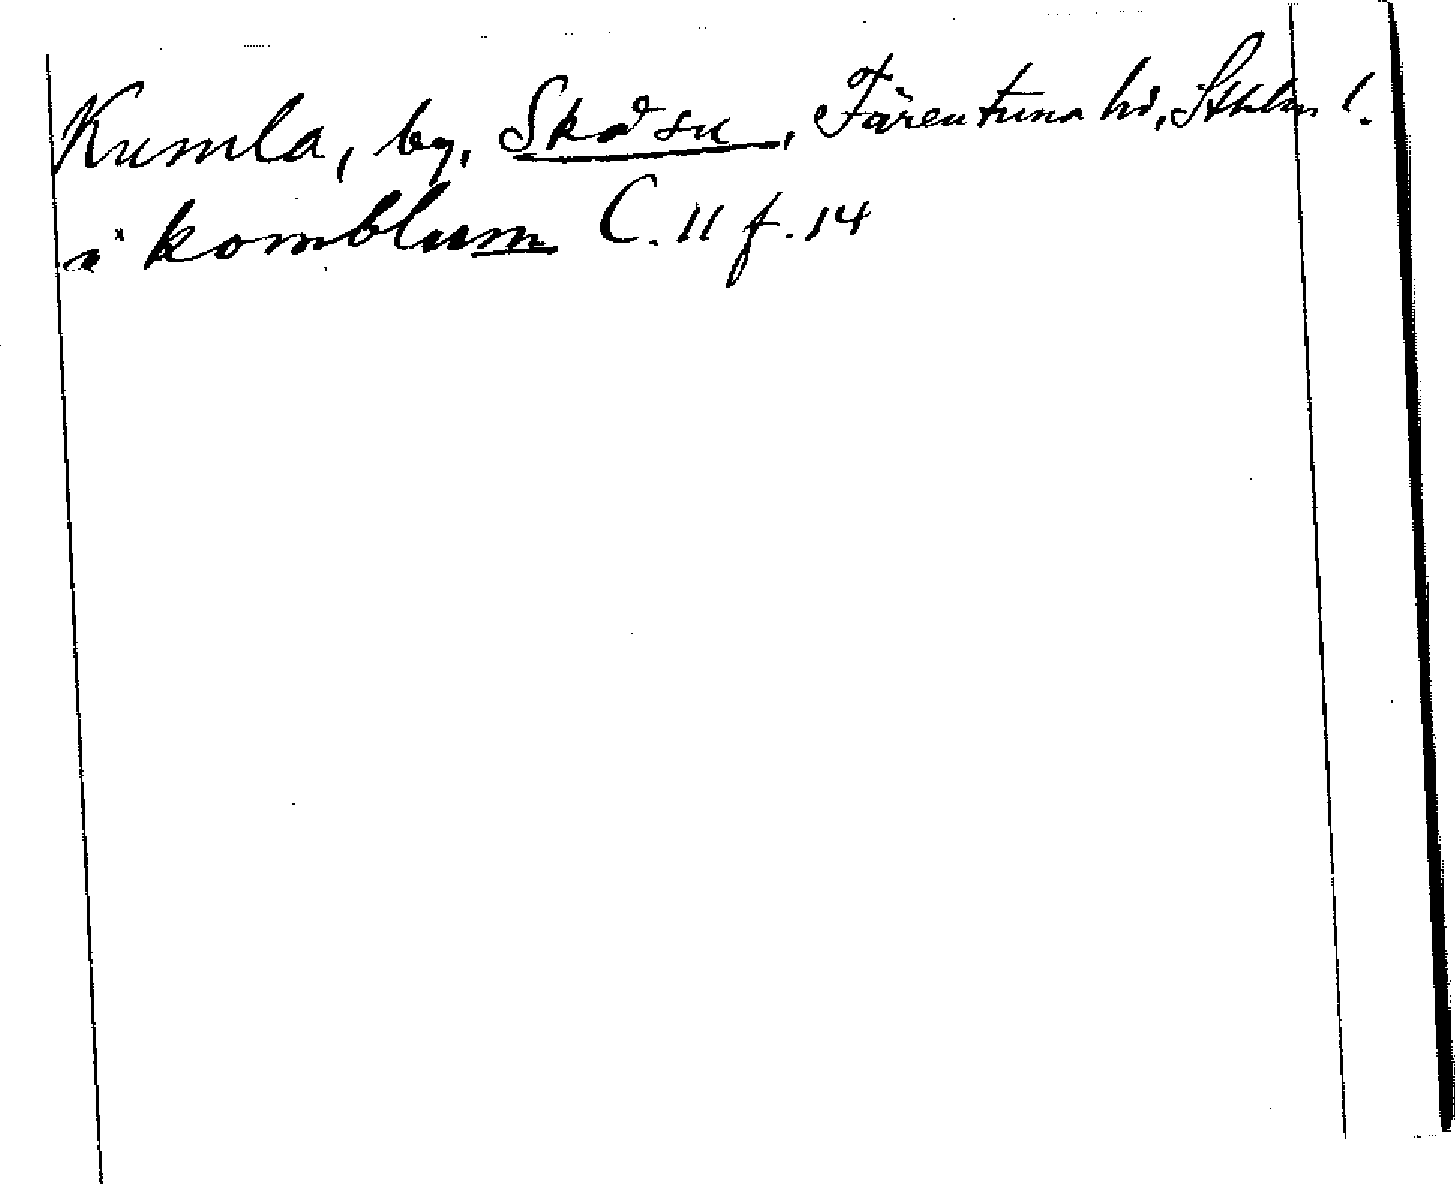 Kumla, by, Skå sn, Färentuna hd, Sthlms l.
i komblum C. 11 f. 14